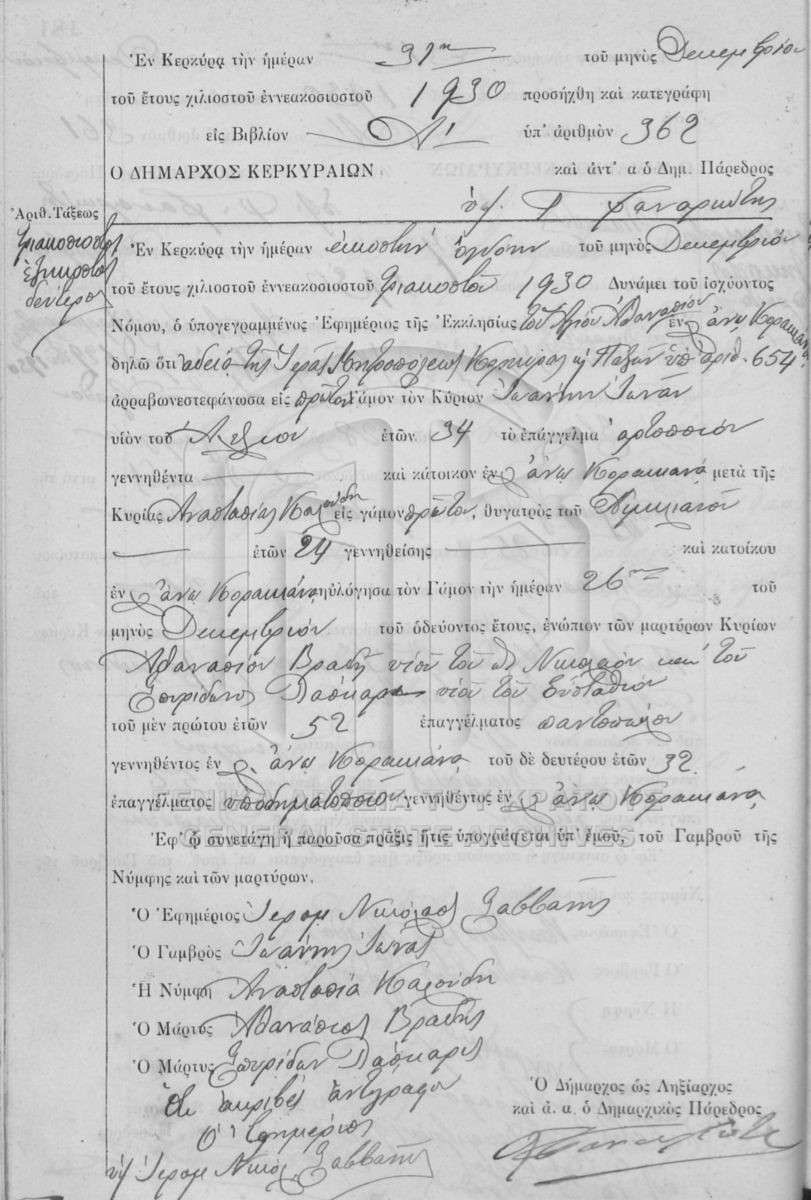 Ἐν Κερκύρᾳ τὴν ἡμέραν 31ην τοῦ μηνὸς Δεκεμβρίου
τοῦ ἔτους χιλιοστοῦ ἐννεακοσιοστοῦ 1930 προσήχθη καὶ κατεγράφη
εἰς Βιβλίον Α' ὑπ' ἀριθμὸν 362
Ο ΔΗΜΑΡΧΟΣ ΚΕΡΚΥΡΑΙΩΝ καὶ ἀντ' α ὁ Δημ. Πάρεδρος
Ἀριθ. Τάξεως
τριακοσιοστὸς
ἑξηκοστὸς
δεύτερος
Ἐν Κερκύρᾳ τὴν ἡμέραν εἰκοστὴν ὀγδόην τοῦ μηνὸς Δεκεμβρίου
τοῦ ἔτους χιλιοστοῦ ἐννεακοσιοστοῦ τριακοστοῦ 1930 Δυνάμει τοῦ ἰσχύοντος
Νόμου, ὁ ὑπογεγραμμένος Ἐφημέριος τῆς Ἐκκλησίας τοῦ Ἁγίου Ἀθανασίου ἐν Ἄνω Κορακιάνᾳ
δηλῶ ὅτι ἀδείᾳ τῆς Ἱερᾶς Μητροπόλεως Κερκύρας κ Παξῶν ὑπ' ἀριθ. 654
ἀρραβωνεστεφάνωσα εἰς πρῶτον Γάμον τὸν Κύριον Ἰωάννην Ἰωνᾶν
υἱὸν τοῦ Ἀλεξίου ἐτῶν 34 τὸ ἐπάγγελμα ἀρτοποιὸν
γεννηθέντα καὶ κάτοικον ἐν Ἄνω Κορακιάνᾳ μετὰ τῆς
Κυρίας Ἀναστασίας Καλούδη εἰς γάμον πρῶτον, θυγατρὸς τοῦ
ἐτῶν 24 γεννηθείσης καὶ κατοίκου
ἐν Ἄνω Κορακιάνᾳ ηὐλόγησα τὸν Γάμον τὴν ἡμέραν 26ην τοῦ
μηνὸς Δεκεμβρίου τοῦ ὁδεύοντος ἔτους, ἐνώπιον τῶν μαρτύρων Κυρίων
Ἀθανασίου Βραδῆ υἱοῦ τοῦ Νικολάου καὶ τοῦ
Σπυρίδωνος Πάσκαρη υἱοῦ τοῦ Εὐσταθίου
τοῦ μὲν πρώτου ἐτῶν 52 ἐπαγγέλματος παντοπώλου
γεννηθέντος ἐν Ἄνω Κορακιάνᾳ τοῦ δὲ δευτέρου ἐτῶν 32
ἐπαγγέλματος ὑποδηματοποιοῦ γεννηθέντος ἐν Ἄνω Κορακιάνᾳ
ΓΕΝΙΚΑ ΑΡΧΕΙΑ ΤΟΥ ΚΡΑΤΟΥΣ
GENERAL STATE ARCHIVES
Ἐφ' ᾧ συνετάγη ἡ παροῦσα πρᾶξις ἥτις ὑπογράφεται ὑπ' ἐμοῦ, τοῦ Γαμβροῦ τῆς
Νύμφης καὶ τῶν μαρτύρων.
Ὁ Ἐφημέριος Ἱερομ Νικόλαος Σαββανης
Ὁ Γαμβρὸς Ἰωάννης Ἰωνᾶς
Ἡ Νύμφη Ἀναστασία Καλούδη
Ὁ Μάρτυς Ἀθανάσιος Βραδῆς
Ὁ Μάρτυς Σπυρίδων Πάσκαρης
Ὅτι ἀκριβὲς ἀντίγραφον
Ὁ Ἐφημέριος
Ἱερομ Νικόλ Σαββανης
Ὁ Δήμαρχος ὡς Ληξίαρχος
καὶ ἀ. α. ὁ Δημαρχικὸς Πάρεδρος